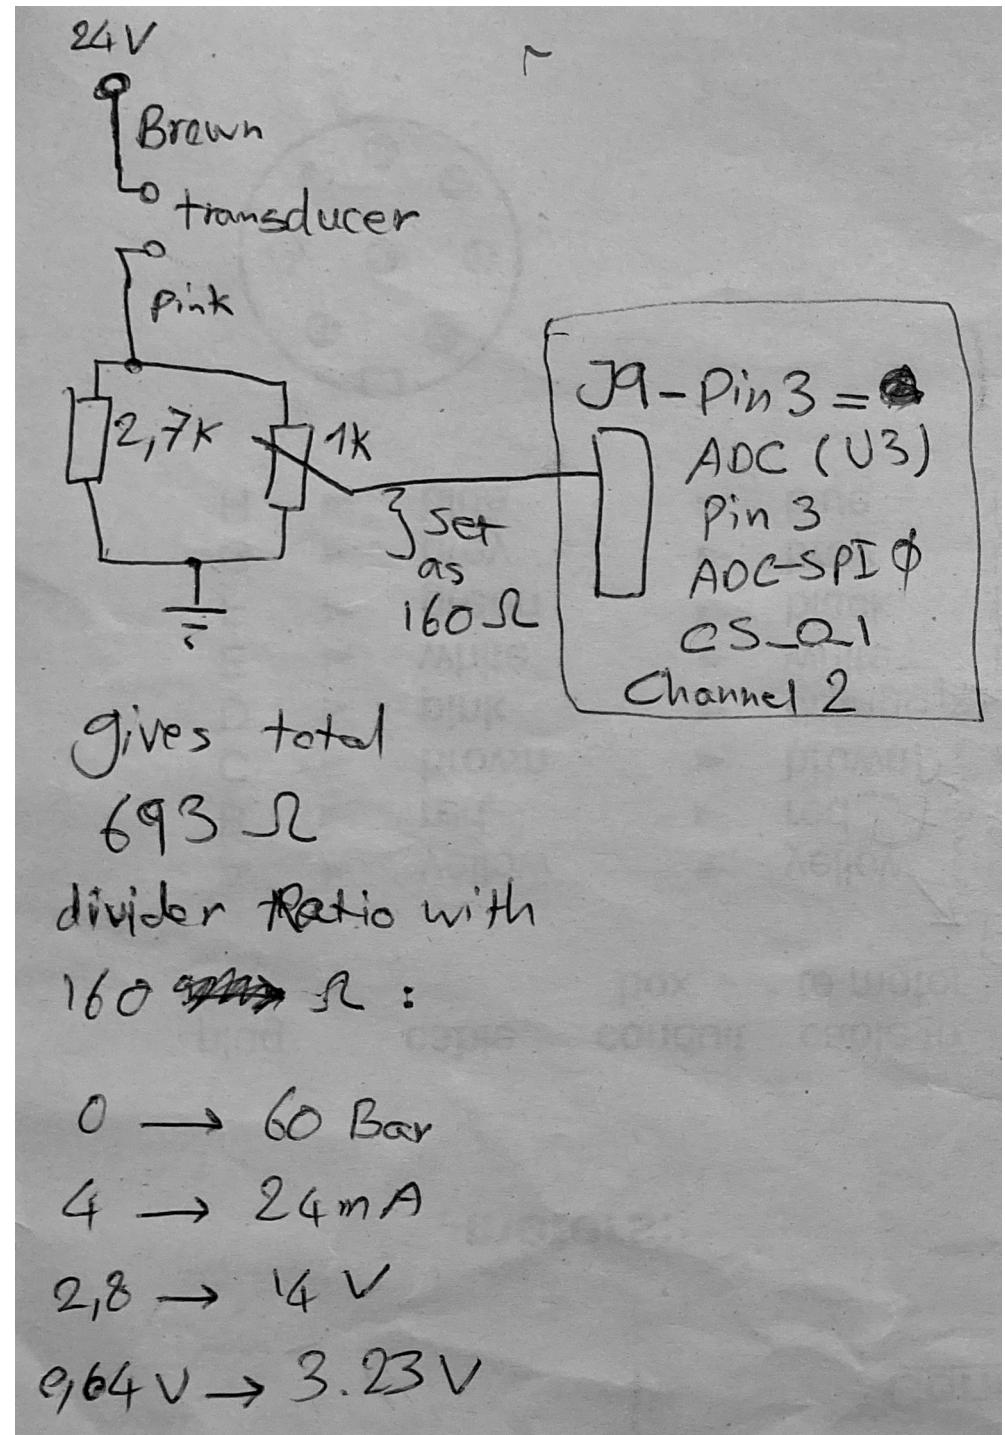 24V
Brown
transducer
Pink
2,7K
1K
set
as
160 Ω
J9-Pin 3 =
ADC (U3)
Pin 3
ADC-SPI0
CS_0_1
Channel 2
gives total
693 Ω
divider Ratio with
160 Ω :
0 → 60 Bar
4 → 24mA
2,8 → 14 V
0,64 V → 3.23 V